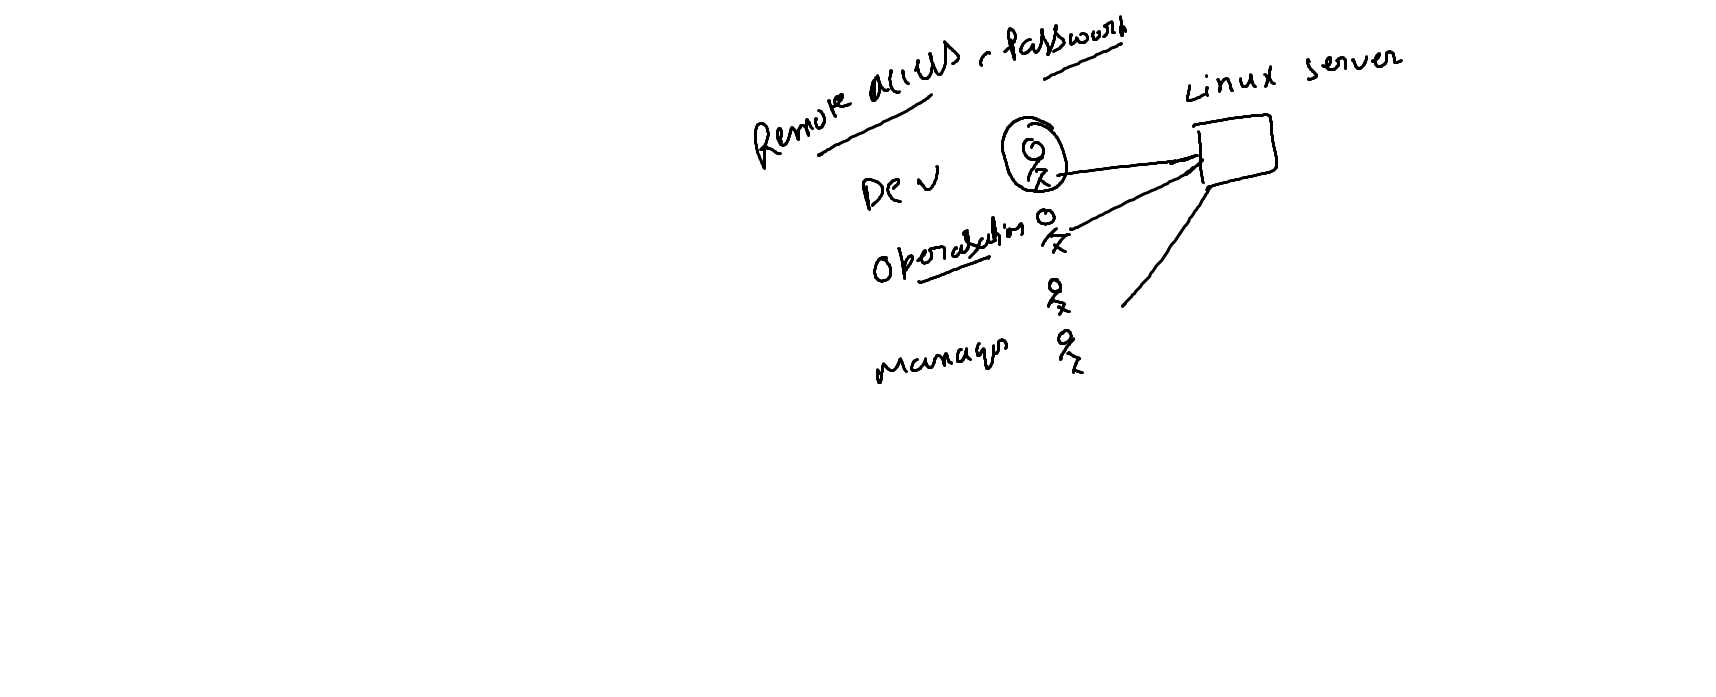 Remote access, Password
Linux server
Dev
Operation
Manager